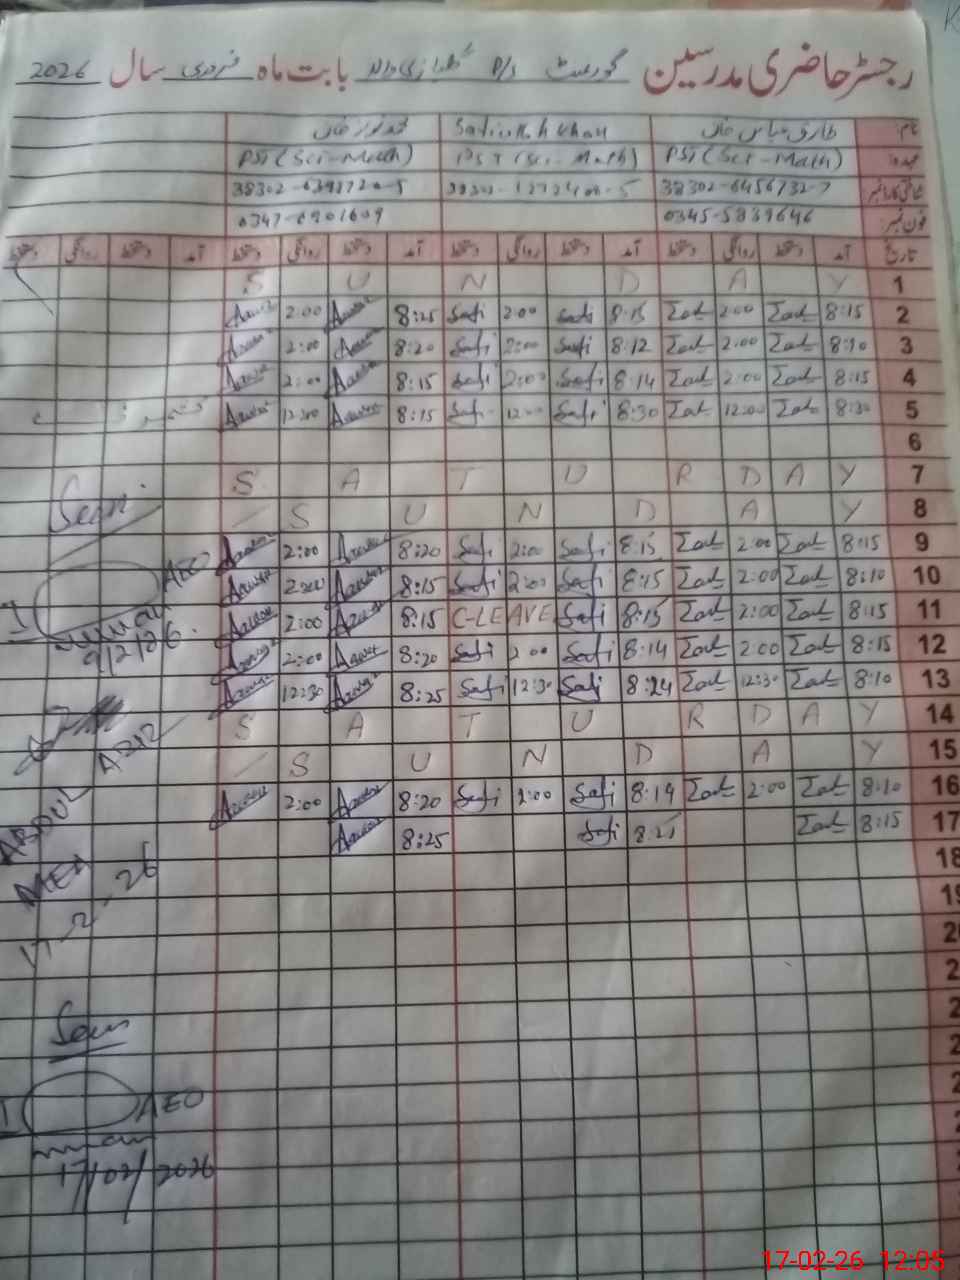 رجسٹر حاضری مدرسین گورنمنٹ P/S بابت ماہ فروری سال 2026
نام: طارق عباس خان Safiullah Khan محمد نواز خان
عہدہ: PST (Sci-Math) PST (Sci-Math) PST (Sci-Math)
شناختی کارڈ نمبر 38302-6456732-7
فون نمبر: 0345-5839646 0347-6901609
تاریخ آمد دستخط روانگی دستخط آمد دستخط روانگی دستخط آمد دستخط روانگی دستخط آمد دستخط روانگی دستخط
S U N D A Y 1
2:00 8:25 Safi 2:00 Safi 8:15 2:00 8:15 2
2:00 8:20 Safi 2:00 Safi 8:12 2:00 8:10 3
2:00 8:15 Safi 2:00 Safi 8:14 2:00 8:15 4
12:00 8:15 Safi 12:00 Safi 8:30 12:00 8:30 5
6
S A T U R D A Y 7
S U N D A Y 8
2:00 8:20 Safi 2:00 Safi 8:15 2:00 8:15 9
2:00 8:15 Safi 2:00 Safi 8:15 2:00 8:10 10
2:00 8:15 C-LEAVE Safi 8:15 2:00 8:15 11
2:00 8:20 Safi 2:00 Safi 8:14 2:00 8:15 12
12:30 8:25 Safi 12:30 Safi 8:24 12:30 8:10 13
S A T U R D A Y 14
S U N D A Y 15
2:00 8:20 Safi 2:00 Safi 8:19 2:00 8:10 16
8:25 Safi 8:25 8:15 17
18
Seen
AEO
9/2/26
ABDUL AZIZ
MEA
17-2-26
Seen
AEO
17/02/2026
17-02-26 12:05